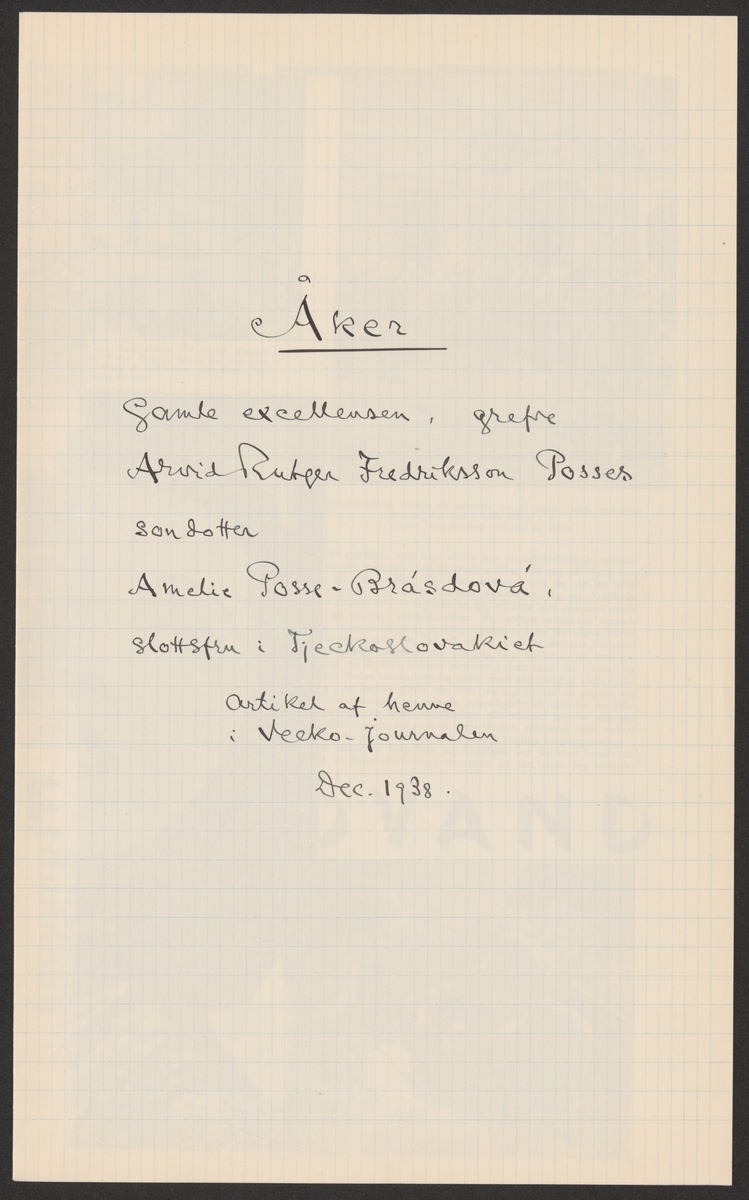 Åker
Gamle excellensen, grefve
Arvid Rutger Fredriksson Posses
sondotter
Amelie Posse-Brásdová,
slottsfru i Tjeckoslovakiet
Artikel af henne
i Vecko-journalen
Dec. 1938.